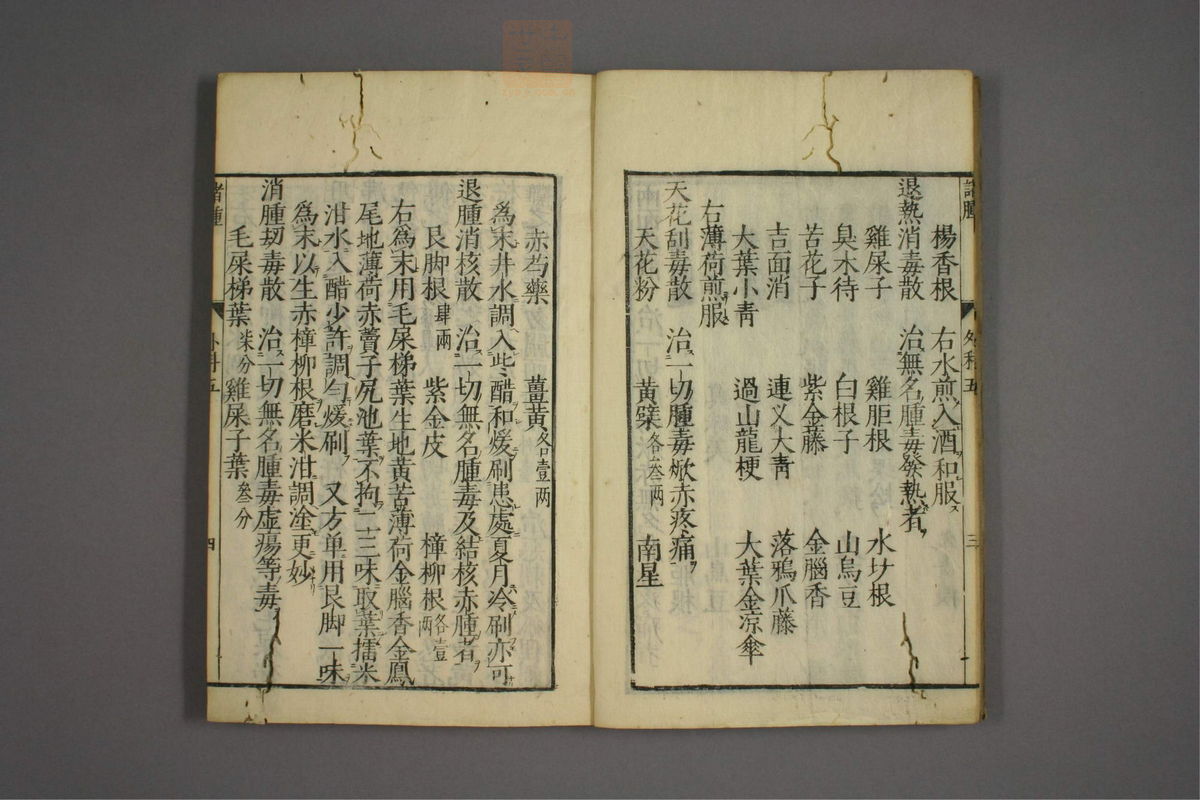 諸腫　外科五　三
楊香根　右水煎入酒和服
退熱消毒散　治無名腫毒發熱者
雞屎子　雞胵根　水圿根
臭木待　白根子　山烏豆
苦花子　紫金藤　金腦香
吉面消　連乂大青　落鴉爪藤
大葉小青　過山龍梗　大葉金凉傘
右薄荷煎服
天花刮毒散　治一切腫毒焮赤疼痛
天花粉　黃檗各叁兩　南星
赤芍藥　薑黃各壹兩
爲末井水調入些醋和煖刷患處夏月冷刷亦可
退腫消核散　治一切無名腫毒及結核赤腫者
艮脚根肆兩　紫金皮　樟柳根各壹兩
右爲末用毛屎梯葉生地黃苦薄荷金腦香金鳳
尾地薄荷赤藚子尻池葉不拘二三味取葉擂米
泔水入醋少許調勻煖刷　又方单用艮脚一味
爲末以生赤樟柳根磨米泔調塗更妙
消腫刼毒散　治一切無名腫毒虛瘍等毒
毛屎梯葉柒分　雞屎子葉叁分
諸腫　外科五　四